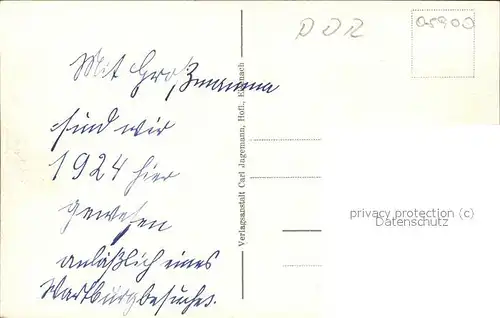 Mit Großmama
sind wir
1924 hier
gewesen
anläßlich eines
Wartburgbesuches.
Verlagsanstalt Carl Jagemann, Hofl., Eisenach
DDR
05900
privacy protection (c)
Datenschutz